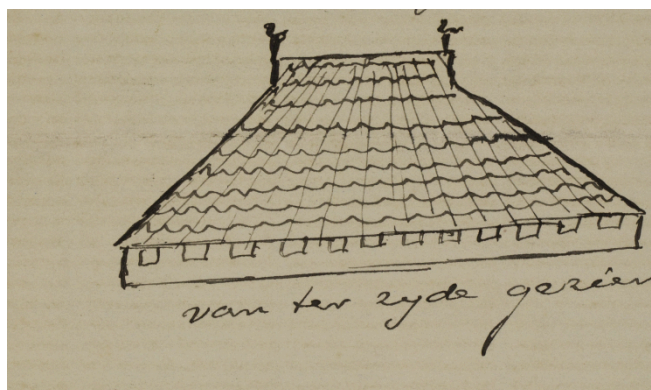 van ter zyde gezien